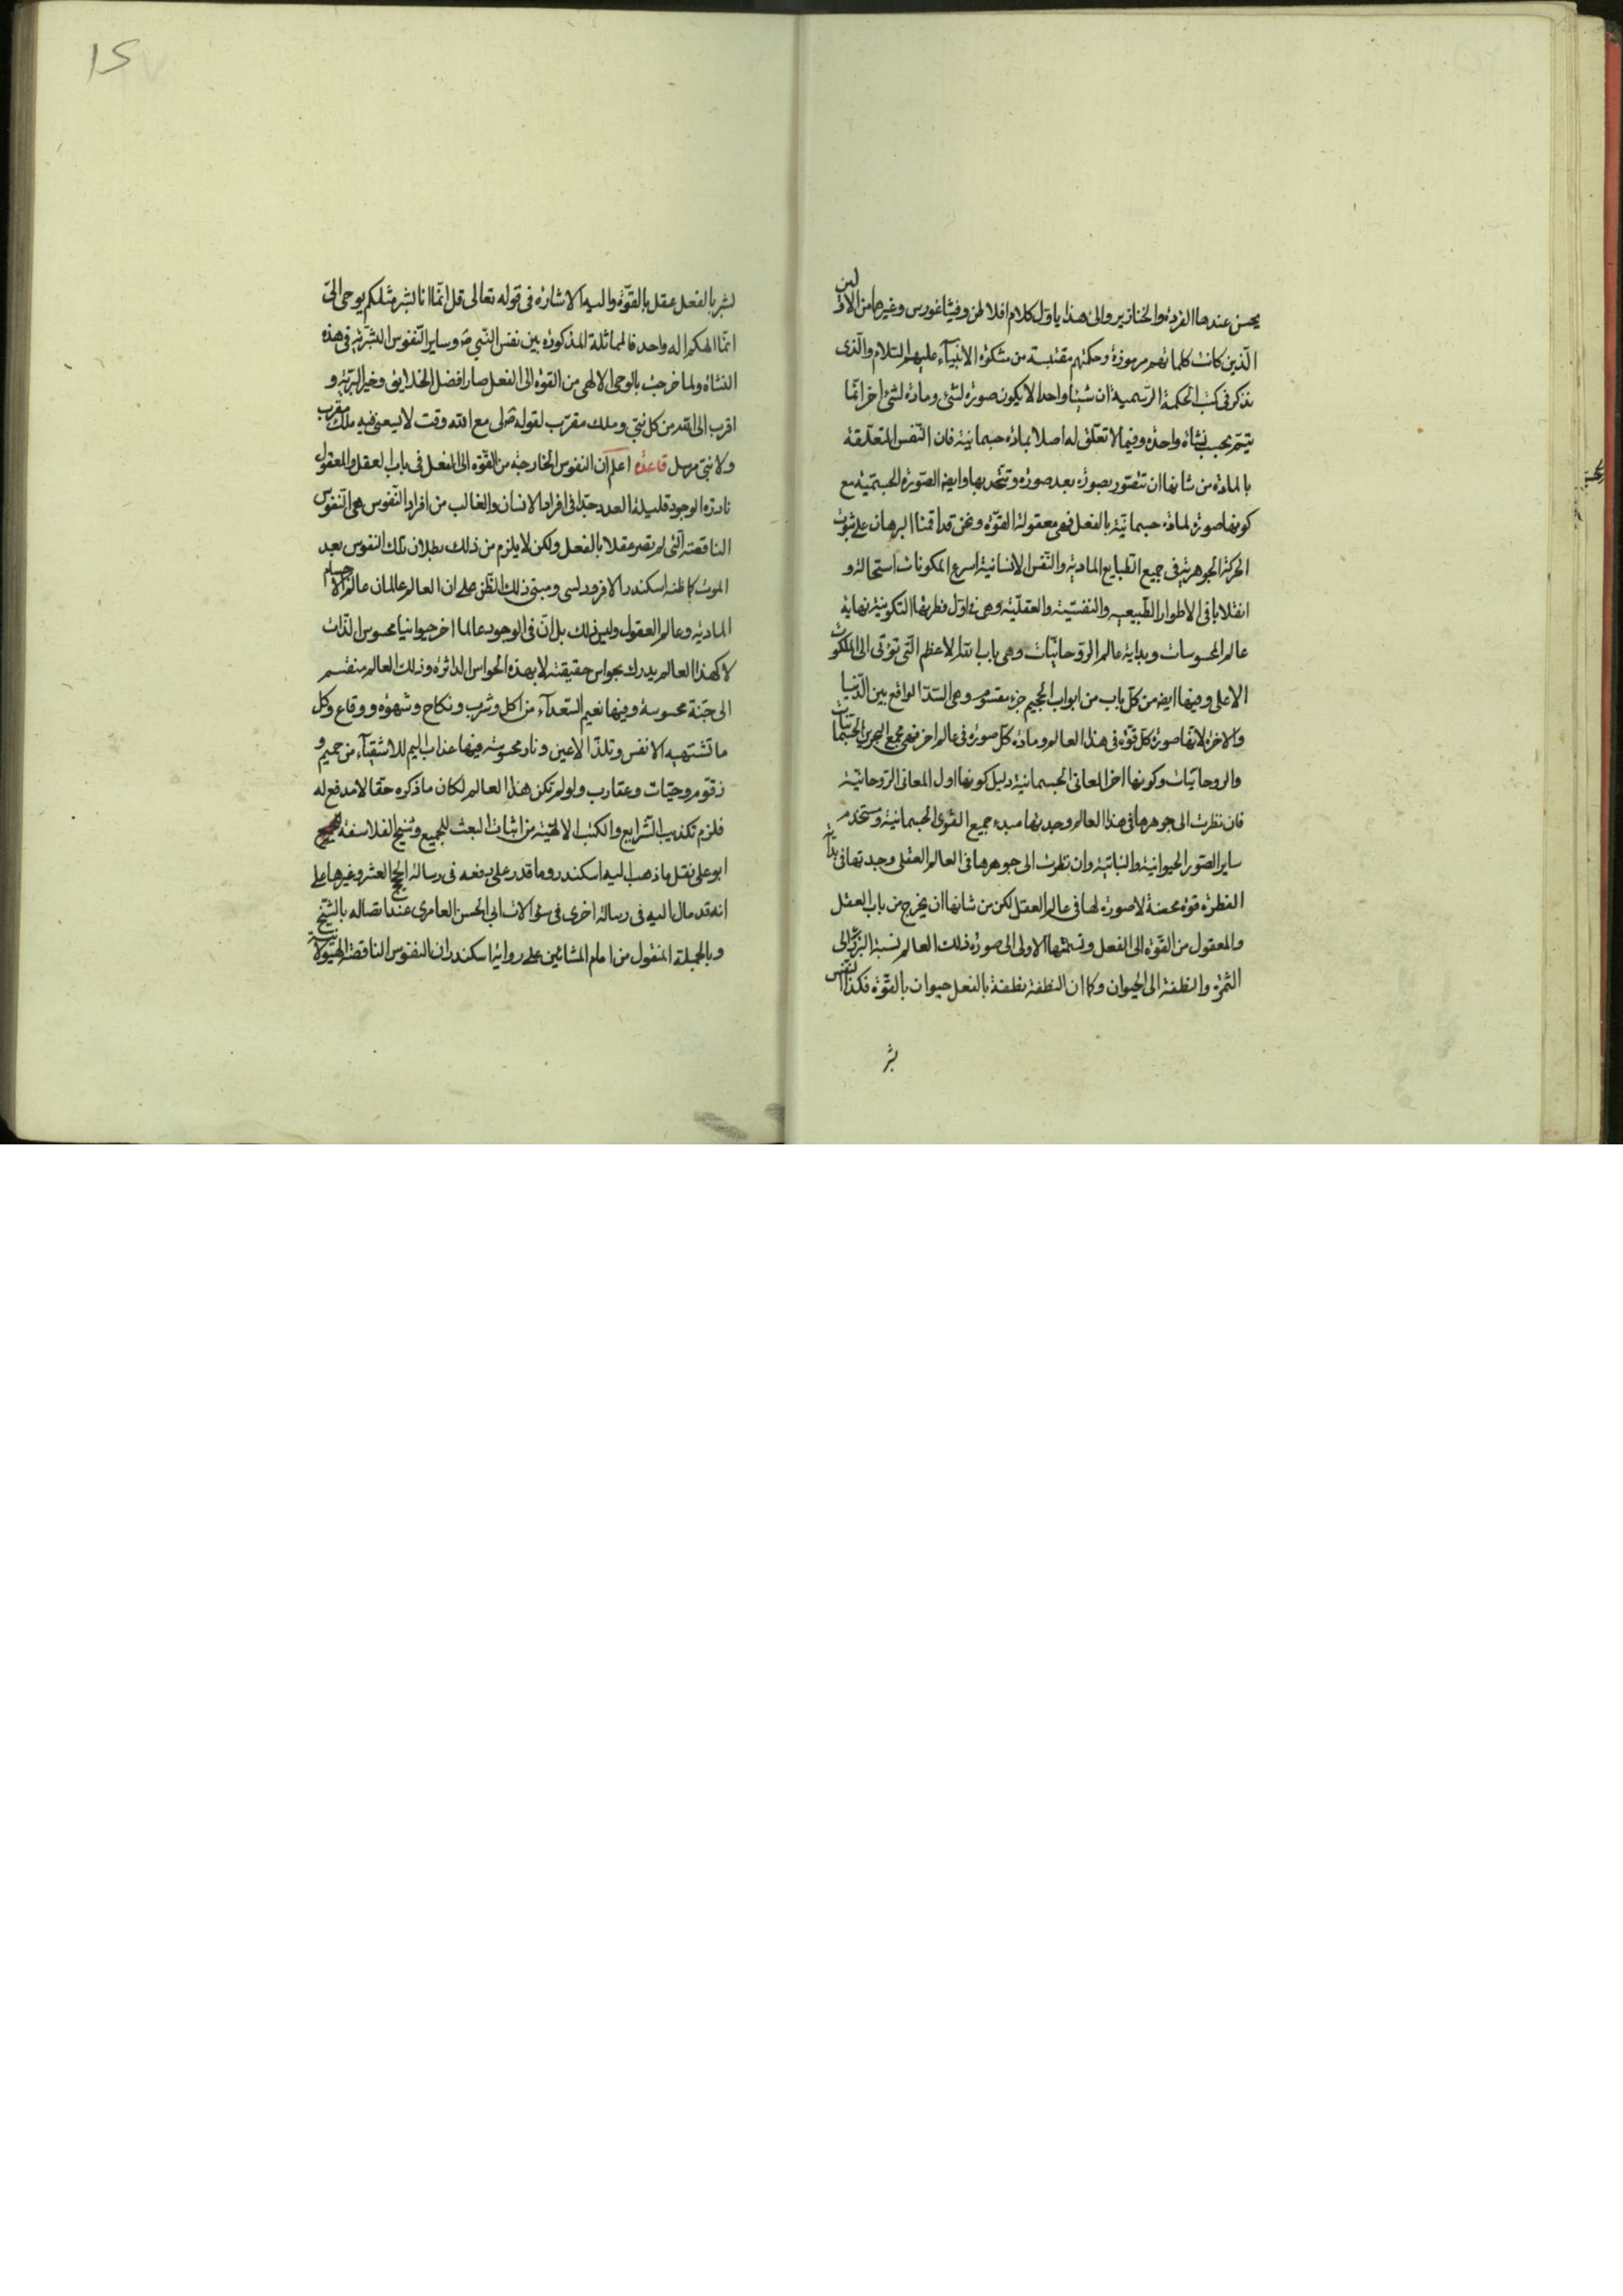 يحسن عندها القردة والخنازير والى هذا ياول كلام افلاطن وفيثاغورس وغيرها من الاولين
الذين كانت كلماتهم مرموزة وحكمتهم مقتبسة من مشكوة الانبيآء عليهم السلام والذى
يذكر فى كتب الحكمة الرسمية ان شيئا واحدا لا يكون صورة لشئ ومادة لشئ اخر انما
يتم بحسب نشاة واحدة وفيما لا تعلق له اصلا بمادة جسمانية فان النفس المتعلقة
بالمادة من شانها ان تتصور بصورة بعد صورة وتتحد بها وايضا الصورة الجسمية مع
كونها صورة لمادة جسمانية بالفعل فهى معقولة القوة ونحن قد اقمنا البرهان على ثبوت
الحركة الجوهرية فى جميع الطبايع المادية والنفس الانسانية اسرع المكونات استحالة و
انقلابا فى الاطوار الطبيعية والنفسية والعقلية وهى فى اول فطرتها التكوينية نهاية
عالم المحسوسات وبداية عالم الروحانيات وهى باب الله الاعظم التى تؤتى الى الملكوت
الاعلى وفيها ايضا من كل باب من ابواب الجحيم جزء مقسوم وهى السد الواقع بين الدنيا
والاخرة لانها صورة كل قوة فى هذا العالم ومادة كل صورة فى عالم اخر فهى مجمع البحرين الجسمانيات
والروحانيات وكونها اخر المعانى الجسمانية دليل كونها اول المعانى الروحانية
فان نظرت الى جوهرها فى هذا العالم وجدتها مبدء جميع القوى الجسمانية ومستخدم
ساير الصور الحيوانية والنباتية وان نظرت الى جوهرها فى العالم العقلى وجدتها فى بدأ
الفطرة قوة محضة لا صورة لها فى عالم العقل لكن من شانها ان يخرج من باب العقل
والمعقول من القوة الى الفعل ونسبتها الاولى الى صورة ذلك العالم نسبة البزر الى
الثمرة والنطفة الى الحيوان وكما ان النطفة نطفة بالفعل حيوان بالقوة فكذا النفس
بشر
لبشر بالفعل عقل بالقوة واليه الاشارة فى قوله تعالى قل انما انا بشر مثلكم يوحى الى
انما الهكم اله واحد فالمماثلة المذكورة بين نفس النبى ص وساير النفوس البشرية فى هذه
النشاة ولما خرجت بالوحى الالهى من القوة الى الفعل صار افضل الخلايق وخير البرية و
اقرب الى الله من كل نبى وملك مقرب لقوله ص لى مع الله وقت لا يسعنى فيه ملك مقرب
ولا نبى مرسل قاعدة اعلم ان النفوس الخارجة من القوة الى الفعل فى باب العقل والمعقول
نادرة الوجود قليلة العدد جدا فى افراد الانسان والغالب من افراد النفوس هى النفوس
الناقصة التى لم تصر عقلا بالفعل ولكن لا يلزم من ذلك بطلان تلك النفوس بعد
الموت كما ظنه اسكندر الافرودسى ومبنى ذلك الظن على ان العالم عالمان عالم الاجسام
المادية وعالم العقول وليس كذلك بل ان فى الوجود عالما اخر حيوانيا محسوس الذات
لا كهذا العالم يدرك بحواس حقيقته لا بهذه الحواس الداثرة وذلك العالم منقسم
الى جنة محسوسة وفيها نعيم السعدآء من اكل وشرب ونكاح وشهوة ووقاع وكل
ما تشتهيه الانفس وتلذ الاعين ونار محسوسة فيها عذاب اليم للاشقيآء من حميم و
زقوم وحيات وعقارب ولو لم تكن هذا العالم لكان ما ذكره حقا لا مدفع له
فلزم تكذيب الشرايع والكتب الالهية من اثبات البعث للجميع وشيخ الفلاسفة
ابو على نقل ما ذهب اليه اسكندر وما قدر على دفعه فى رسالة الحجج العشر وغيرها على
انه قد مال اليه فى رسالة اخرى فى سؤالات ابى الحسن العامرى عند اتصاله بالشيخ
وبالجملة المنقول من امام المشائين على رواية اسكندر ان النفوس الناقصة الهيولانية